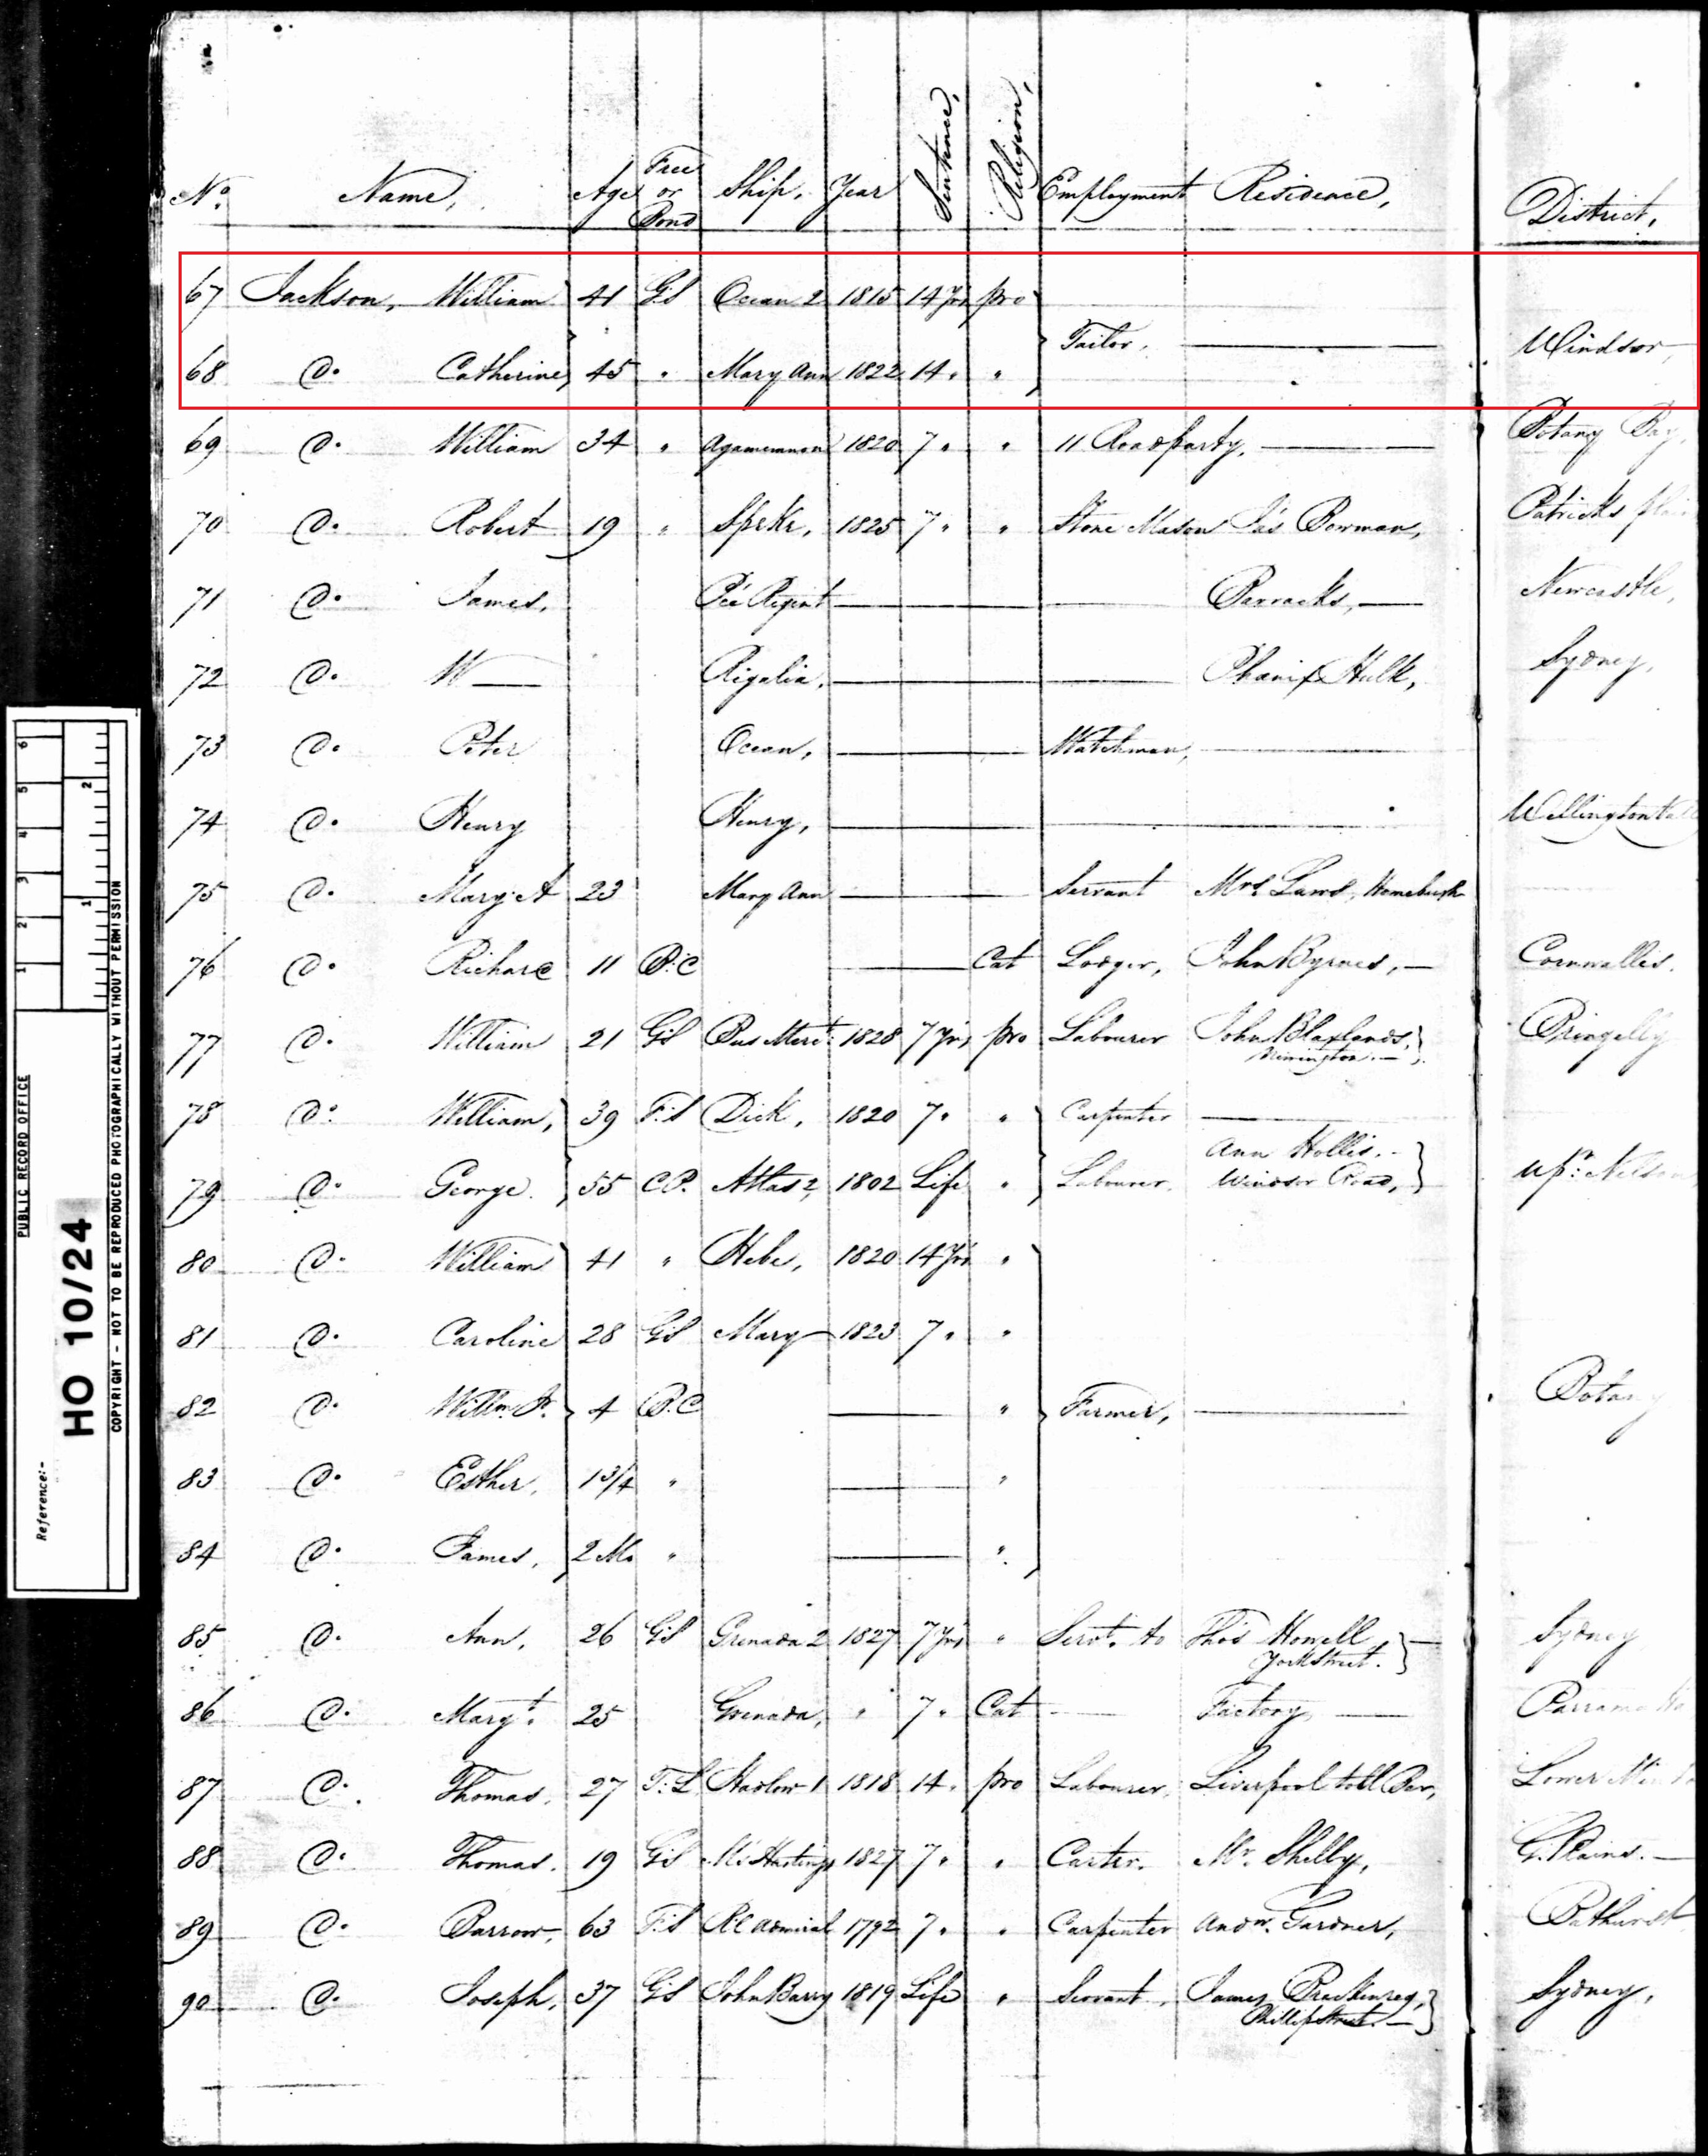 No. Name, Age Free or Bond Ship, Year Sentence, Religion, Employment Residence, District,
67 Jackson, William 41 GS Ocean 2 1815 14 Yrs pro
Tailor, Windsor,
68 Do. Catherine 45 " Mary Ann 1822 14 " "
69 Do. William 34 " Agamemnon 1820 7 " " 11 Roadparty, Botany Bay,
70 Do. Robert 19 " Speke, 1825 7 " " Stone Mason Jas Bowman, Patricks
71 Do. James, Pce Regent Barracks, Newcastle,
72 Do. W— Rigalia, Phanix Hulk, Sydney,
73 Do. Peter Ocean, Watchman,
74 Do. Henry Henry, Wellington
75 Do. Mary A 23 Mary Ann Servant Mrs. Laws, Homebush
76 Do. Richard 11 B.C Cat Lodger, John Byrnes, Cornwallis.
77 Do. William 21 GS Bus Mert. 1828 7 Yrs pro Labourer John Blaxlands, Bringelly
78 Do. William, 39 F.S Dick, 1820 7 " " Carpenter
Ann Hollis.
79 Do. George. 55 C.P. Atlas 2, 1802 Life " Labourer. Windsor Road, Upr. Nelson
80 Do. William 41 " Hebe, 1820 14 Yrs "
81 Do. Caroline 28 GS Mary 1823 7 " "
82 Do. Willm. Jr. 4 B.C " Farmer, Botany
83 Do. Esther, 1 3/4 " "
84 Do. James, 2 Mo " "
85 Do. Ann, 26 GS Grenada 2 1827 7 Yrs " Servt. to Thos Howell Sydney
York Street.
86 Do. Margt. 25 Grenada, " 7 " Cat Factory, Parramatta
87 Do. Thomas, 27 T.L Harlow 1 1818 14 " pro Labourer, Liverpool toll Bar, Lower
88 Do. Thomas. 19 GS Ms Hastings 1827 7 " " Carter. Mr. Shelly, G. Plains.
89 Do. Barrow, 63 F.S Rl Admiral 1792 7 " " Carpenter Andw. Gardner, Bathurst
90 Do. Joseph, 37 GS John Barry 1819 Life " Servant, James Sydney,
Phillip Street.
PUBLIC RECORD OFFICE
Reference:-
HO 10/24
COPYRIGHT - NOT TO BE REPRODUCED PHOTOGRAPHICALLY WITHOUT PERMISSION
1 2 3 4 5 6
1 2